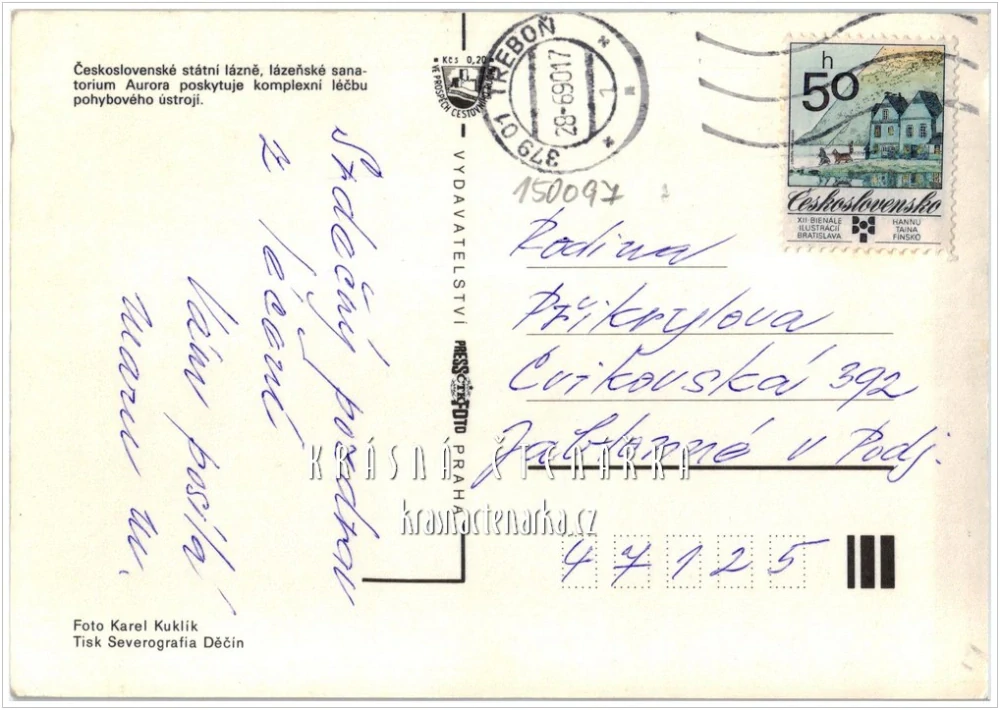 Československé státní lázně, lázeňské sana-
torium Aurora poskytuje komplexní léčbu
pohybového ústrojí.
Srdečný pozdrav
z léčení
Vám posílá
Foto Karel Kuklík
Tisk Severografia Děčín
Kčs 0,20
VE PROSPĚCH CESTOVNÍHO
VYDAVATELSTVÍ PRESSFOTO PRAHA
ČTK
379 01 TŘEBOŇ
28-6 90 17
1
150097
h
50
Československo
XII. BIENÁLE
ILUSTRÁCIÍ
BRATISLAVA
HANNU
TAINA
FÍNSKO
Rodina
Přikrylova
Cvikovská 392
Jablonné v Podj.
47125
KRÁSNÁ ČTENÁŘKA
krasnactenarka.cz